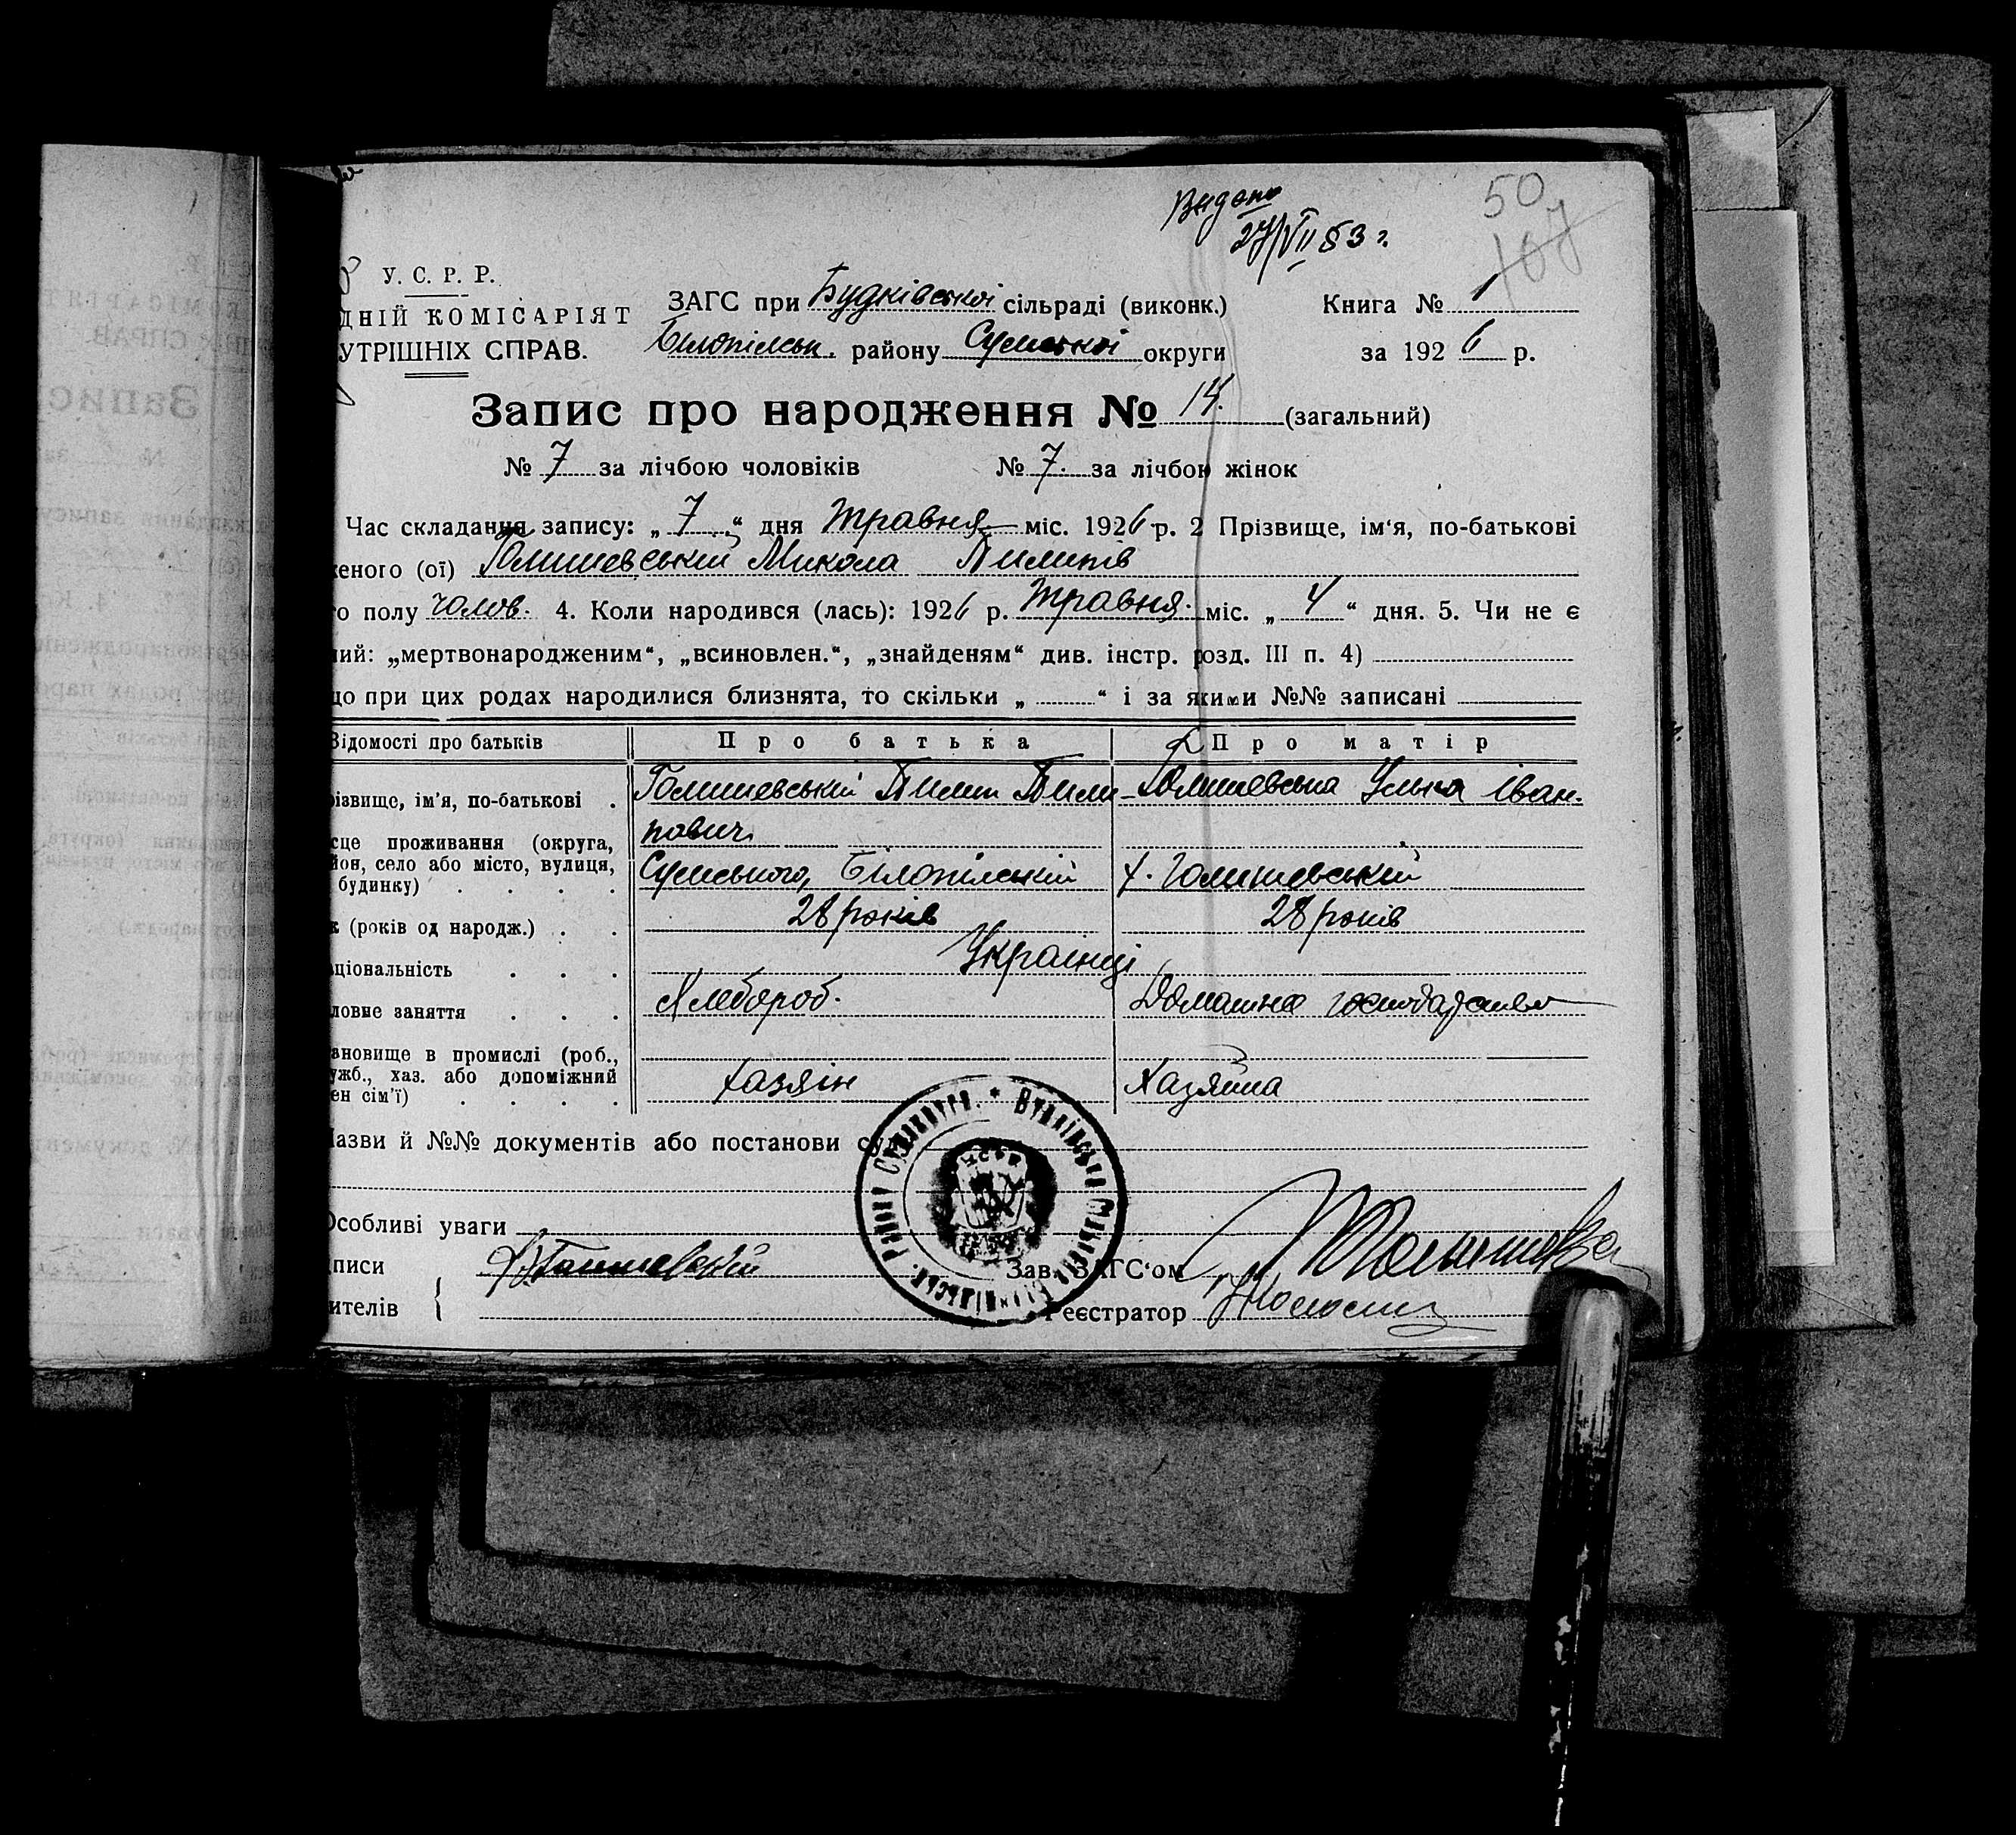 Видано
27/VII 53 г.
50
107
У. С. Р. Р.
ДНІЙ КОМІСАРІЯТ
УТРІШНІХ СПРАВ.
ЗАГС при Будківської сільраді (виконк.)
Білопільськ. району Сумської округи
Книга № 1
за 1926 р.
Запис про народження № 14. (загальний)
№ 7 за лічбою чоловіків № 7. за лічбою жінок
Час складання запису: „ 7 “ дня Травня міс. 1926 р. 2 Прізвище, ім‘я, по-батькові
женого (ої) Голишевський Микола Пилипів
о полу чолов. 4. Коли народився (лась): 1926 р. Травня міс. „ 4 “ дня. 5. Чи не є
ний: „мертвонародженим“, „всиновлен.“, „знайденям“ див. інстр. розд. III п. 4)
що при цих родах народилися близнята, то скільки „ “ і за якими №№ записані
Відомості про батьків Про батька Про матір
різвище, ім’я, по-батькові . Голишевський Пилип Пили- Голишевська Улька Іван.
пович
сце проживання (округа,
йон, село або місто, вулиця,
будинку) . . . . Сумського, Білопільський х. Голишевський
к (років од народж.) . . 28 років 28 років
ціональність . . . Українці
ловне заняття . . . Хлебороб. Домашнее господарство
ановище в промислі (роб.,
ужб., хаз. або допоміжний
ен сім’ї) . . . . хазяін Хазяйка
Назви й №№ документів або постанови су
Особливі уваги
писи Голишевський
ителів {
Зав. ЗАГС‘ом
Реєстратор